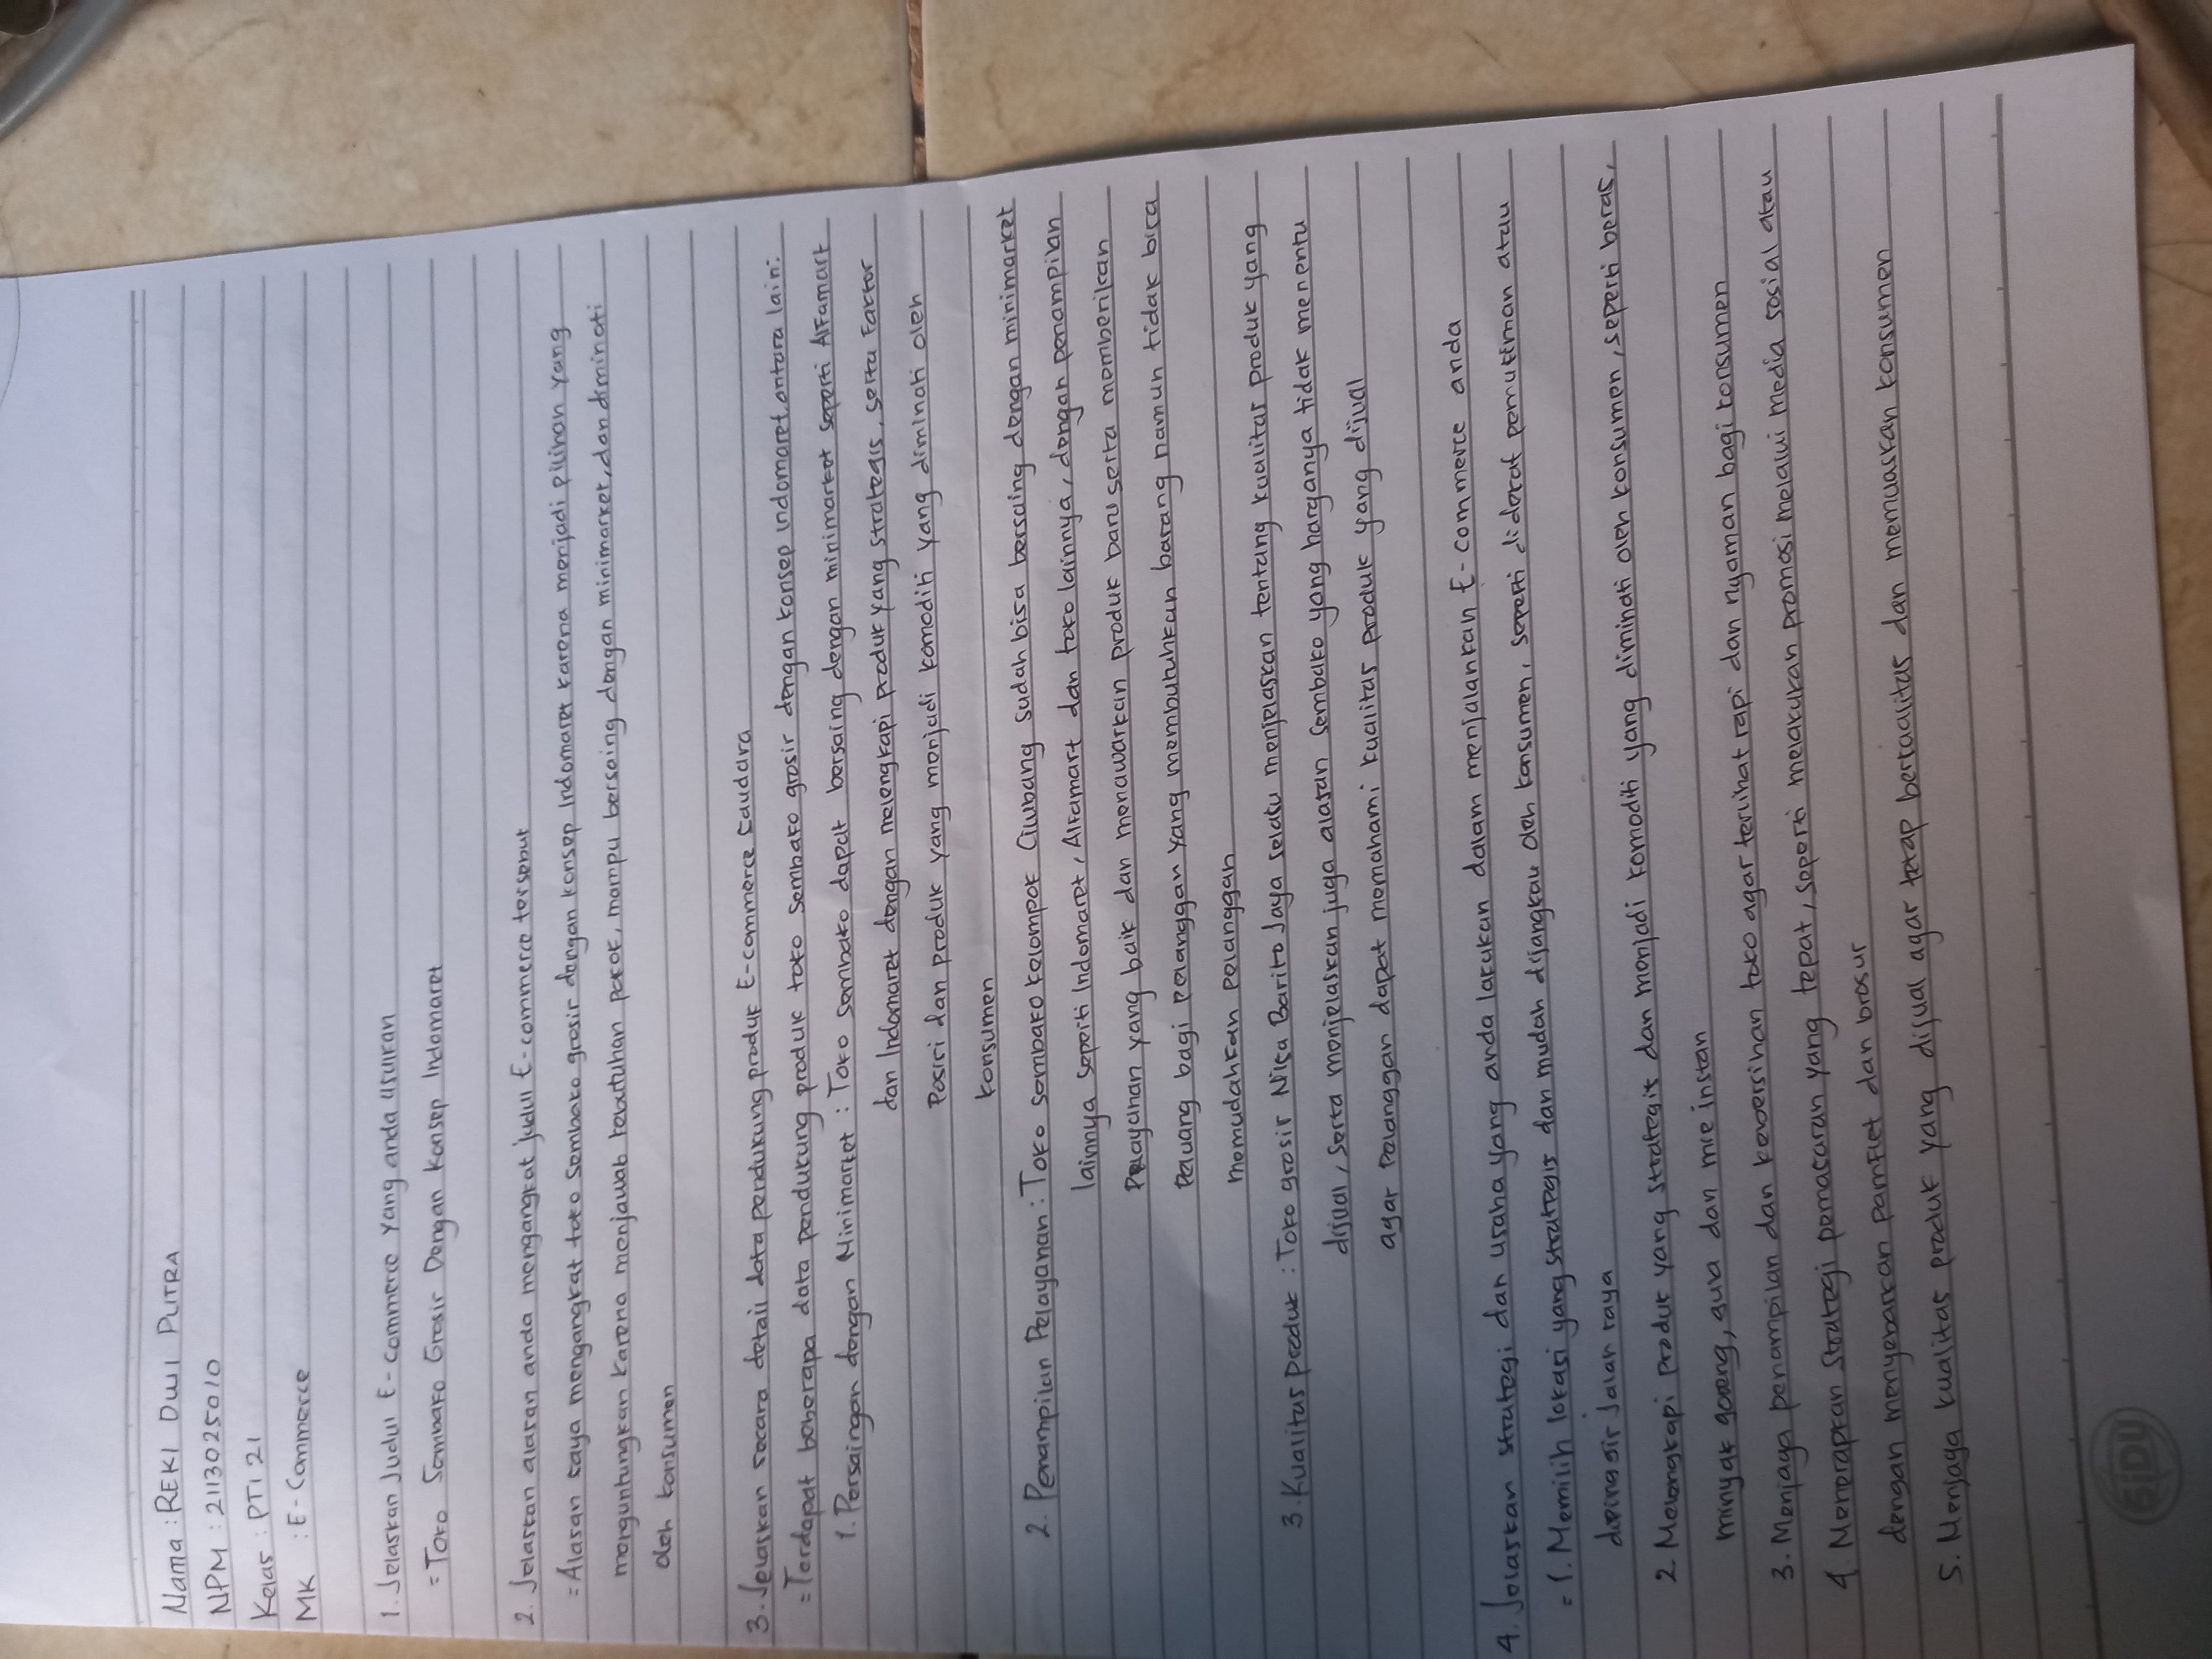 Nama : REKI DWI PUTRA
NPM : 2113025010
Kelas : PTI 21
MK : E-Commerce
1. Jelaskan Judul E-Commerce Yang anda usulkan
= Toko Sembako Grosir Dengan Konsep Indomaret
2. Jelaskan alasan anda mengangkat judul E-commerce tersebut
= Alasan saya mengangkat toko sembako grosir dengan konsep Indomaret karena menjadi pilihan yang
menguntungkan karena menjawab kebutuhan pokok, mampu bersaing dengan minimarket, dan diminati
oleh konsumen
3. Jelaskan secara detail data pendukung produk E-commerce saudara
= Terdapat beberapa data pendukung produk toko sembako grosir dengan konsep indomaret, antara lain:
1. Persaingan dengan Minimarket : Toko sembako dapat bersaing dengan minimarket seperti Alfamart
dan Indomaret dengan melengkapi produk yang strategis, serta faktor
Posisi dan produk yang menjadi komoditi yang diminati oleh
konsumen
2. Penampilan Pelayanan : Toko sembako kelompok Ciwbang sudah bisa bersaing dengan minimarket
lainnya seperti Indomaret, Alfamart dan toko lainnya, dengan penampilan
Pelayanan yang baik dan menawarkan produk baru serta memberikan
Peluang bagi pelanggan yang membutuhkan barang namun tidak bisa
memudahkan pelanggan
3. Kualitas produk : Toko grosir Nisa Barito Jaya selalu menjelaskan tentang kualitas produk yang
dijual, serta menjelaskan juga alasan sembako yang harganya tidak menentu
agar Pelanggan dapat memahami kualitas produk yang dijual
4. Jelaskan strategi dan usaha yang anda lakukan dalam menjalankan E-commerce anda
= 1. Memilih lokasi yang strategis dan mudah dijangkau oleh konsumen, seperti di dekat pemukiman atau
dipinggir jalan raya
2. Melengkapi produk yang strategis dan menjadi komoditi yang diminati oleh konsumen, seperti beras,
minyak goreng, gula dan mie instan
3. Menjaga penampilan dan kebersihan toko agar terlihat rapi dan nyaman bagi konsumen
4. Menerapkan strategi pemasaran yang tepat, seperti melakukan promosi melalui media sosial atau
dengan menyebarkan pamflet dan brosur
5. Menjaga kualitas produk yang dijual agar tetap berkualitas dan memuaskan konsumen
SIDU